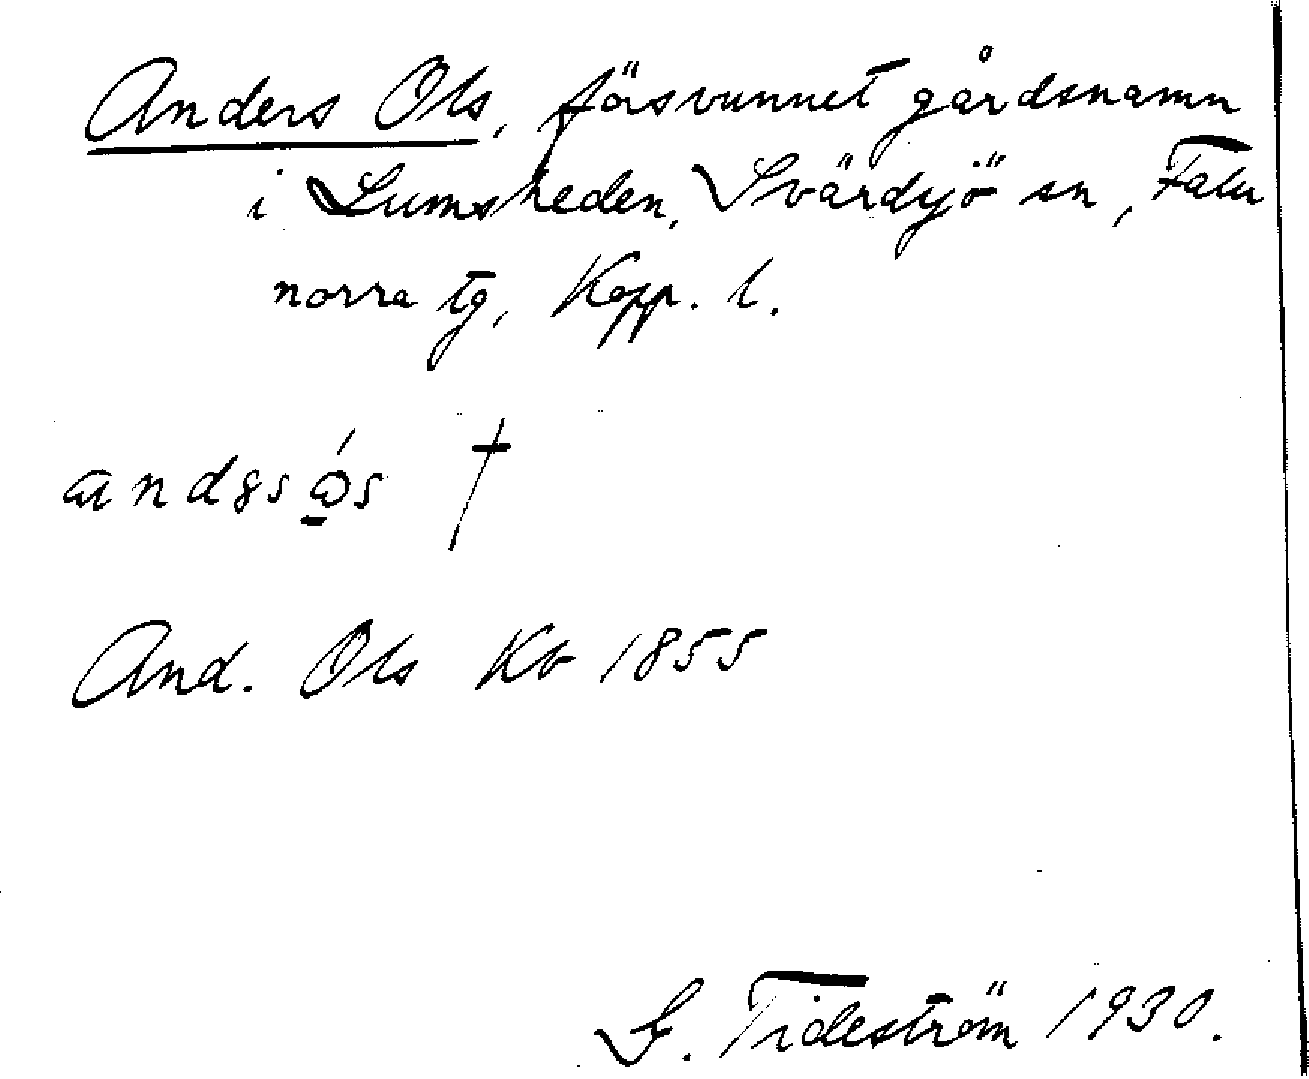 Anders Ols, försvunnet gårdsnamn
i Lumsheden, Svärdsjö sn, Falu
norra tg, Kopp. l.
†
And. Ols Kb 1855
G. Tideström 1930.